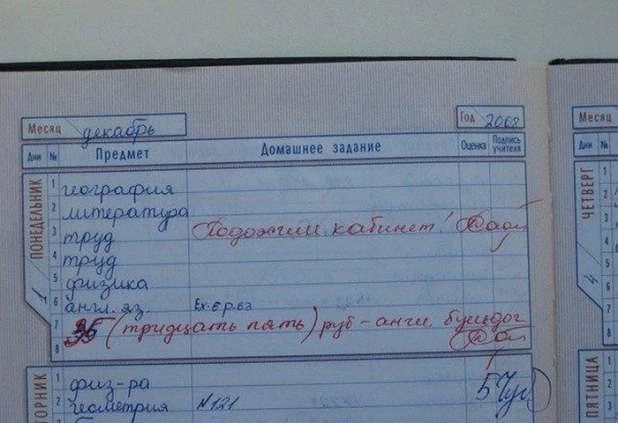 Месяц декабрь Год 2008
Дни № Предмет Домашнее задание Оценка Подпись учителя
ПОНЕДЕЛЬНИК 1
1 география
2 литература
3 труд Подожгли кабинет!
4 труд
5 физика
6 англ. яз. Ex. 5 p. 63
7 35 (тридцать пять) руб - англ бульдог
8
ВТОРНИК
1 физ-ра 5
2 геометрия № 121
Месяц
Дни №
ЧЕТВЕРГ 4
1
2
3
4
5
6
7
8
ПЯТНИЦА
1
2